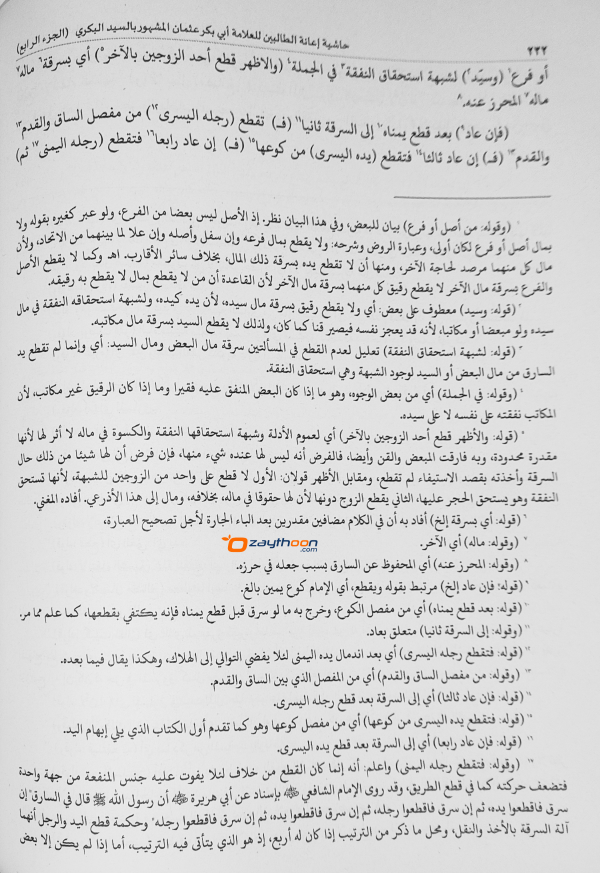 ٢٢٢ حاشية إعانة الطالبين للعلامة أبي بكر عثمان المشهور بالسيد البكري (الجزء الرابع)
أو فرع١ (وسيّد٢) لشبهة استحقاق النفقة٣ في الجملة٤ (والاظهر قطع أحد الزوجين بالآخر٥) أي بسرقة٦ ماله٧
ماله٧ المحرز عنه.٨
(فإن عاد٩) بعد قطع يمناه١٠ إلى السرقة ثانيا١١ (فـ) تقطع (رجله اليسرى١٢) من مفصل الساق والقدم١٣
والقدم١٣ (فـ) إن عاد ثالثا١٤ فتقطع (يده اليسرى) من كوعها١٥ (فـ) إن عاد رابعا١٦ فتقطع (رجله اليمنى١٧ ثم)
١ (وقوله: من أصل أو فرع) بيان للبعض، وفي هذا البيان نظر. إذ الأصل ليس بعضا من الفرع، ولو عبر كغيره بقوله ولا
بمال أصل أو فرع لكان أولى، وعبارة الروض وشرحه: ولا يقطع بمال فرعه وإن سفل وأصله وإن علا لما بينهما من الاتحاد، ولأن
مال كل منهما مرصد لحاجة الآخر، ومنها أن لا تقطع يده بسرقة ذلك المال، بخلاف سائر الأقارب. اهـ وكما لا يقطع الأصل
والفرع بسرقة مال الآخر لا يقطع رقيق كل منهما بسرقة مال الآخر لأن القاعدة أن من لا يقطع بمال لا يقطع به رقيقه.
٢ (قوله: وسيد) معطوف على بعض: أي ولا يقطع رقيق بسرقة مال سيده، لأن يده كيده، ولشبهة استحقاقه النفقة في مال
سيده ولو مبعضا أو مكاتبا، لأنه قد يعجز نفسه فيصير قنا كما كان، ولذلك لا يقطع السيد بسرقة مال مكاتبه.
٣ (قوله: لشبهة استحقاق النفقة) تعليل لعدم القطع في المسألتين سرقة مال البعض ومال السيد: أي وإنما لم تقطع يد
السارق من مال البعض أو السيد لوجود الشبهة وهي استحقاق النفقة.
٤ (وقوله: في الجملة) أي من بعض الوجوه، وهو ما إذا كان البعض المنفق عليه فقيرا وما إذا كان الرقيق غير مكاتب، لأن
المكاتب نفقته على نفسه لا على سيده.
٥ (قوله: والأظهر قطع أحد الزوجين بالآخر) أي لعموم الأدلة وشبهة استحقاقها النفقة والكسوة في ماله لا أثر لها لأنها
مقدرة محدودة، وبه فارقت المبعض والقن وأيضا، فالفرض أنه ليس لها عنده شيء منها، فإن فرض أن لها شيئا من ذلك حال
السرقة وأخذته بقصد الاستيفاء لم تقطع، ومقابل الأظهر قولان: الأول لا قطع على واحد من الزوجين للشبهة، لأنها تستحق
النفقة وهو يستحق الحجر عليها، الثاني يقطع الزوج دونها لأن لها حقوقا في ماله، بخلافه، ومال إلى هذا الأذرعي. أفاده المغني.
٦ (قوله: أي بسرقة إلخ) أفاد به أن في الكلام مضافين مقدرين بعد الباء الجارة لأجل تصحيح العبارة،
٧ (وقوله: ماله) أي الآخر.
zaythoon.com
٨ (وقوله: المحرز عنه) أي المحفوظ عن السارق بسبب جعله في حرزه.
٩ (قوله: فإن عاد إلخ) مرتبط بقوله ويقطع، أي الإمام كوع يمين بالغ.
١٠ (قوله: بعد قطع يمناه) أي من مفصل الكوع، وخرج به ما لو سرق قبل قطع يمناه فإنه يكتفي بقطعها، كما علم مما مر.
١١ (وقوله: إلى السرقة ثانيا) متعلق بعاد.
١٢ (قوله: فتقطع رجله اليسرى) أي بعد اندمال يده اليمنى لئلا يفضي التوالي إلى الهلاك، وهكذا يقال فيما بعده.
١٣ (قوله: من مفصل الساق والقدم) أي من المفصل الذي بين الساق والقدم.
١٤ (قوله: فإن عاد ثالثا) أي إلى السرقة بعد قطع رجله اليسرى.
١٥ (قوله: فتقطع يده اليسرى من كوعها) أي من مفصل كوعها وهو كما تقدم أول الكتاب الذي يلي إبهام اليد.
١٦ (قوله: فإن عاد رابعا) أي إلى السرقة بعد قطع يده اليسرى.
١٧ (وقوله: فتقطع رجله اليمنى) واعلم: أنه إنما كان القطع من خلاف لئلا يفوت عليه جنس المنفعة من جهة واحدة
فتضعف حركته كما في قطع الطريق، وقد روى الإمام الشافعي ﵁ بإسناد عن أبي هريرة ﵁ أن رسول الله ﷺ قال في السارق "إن
سرق فاقطعوا يده، ثم إن سرق فاقطعوا رجله، ثم إن سرق فاقطعوا يده، ثم إن سرق فاقطعوا رجله" وحكمة قطع اليد والرجل أنهما
آلة السرقة بالأخذ والنقل، ومحل ما ذكر من الترتيب إذا كان له أربع، إذ هو الذي يتأتى فيه الترتيب، أما إذا لم يكن إلا بعض